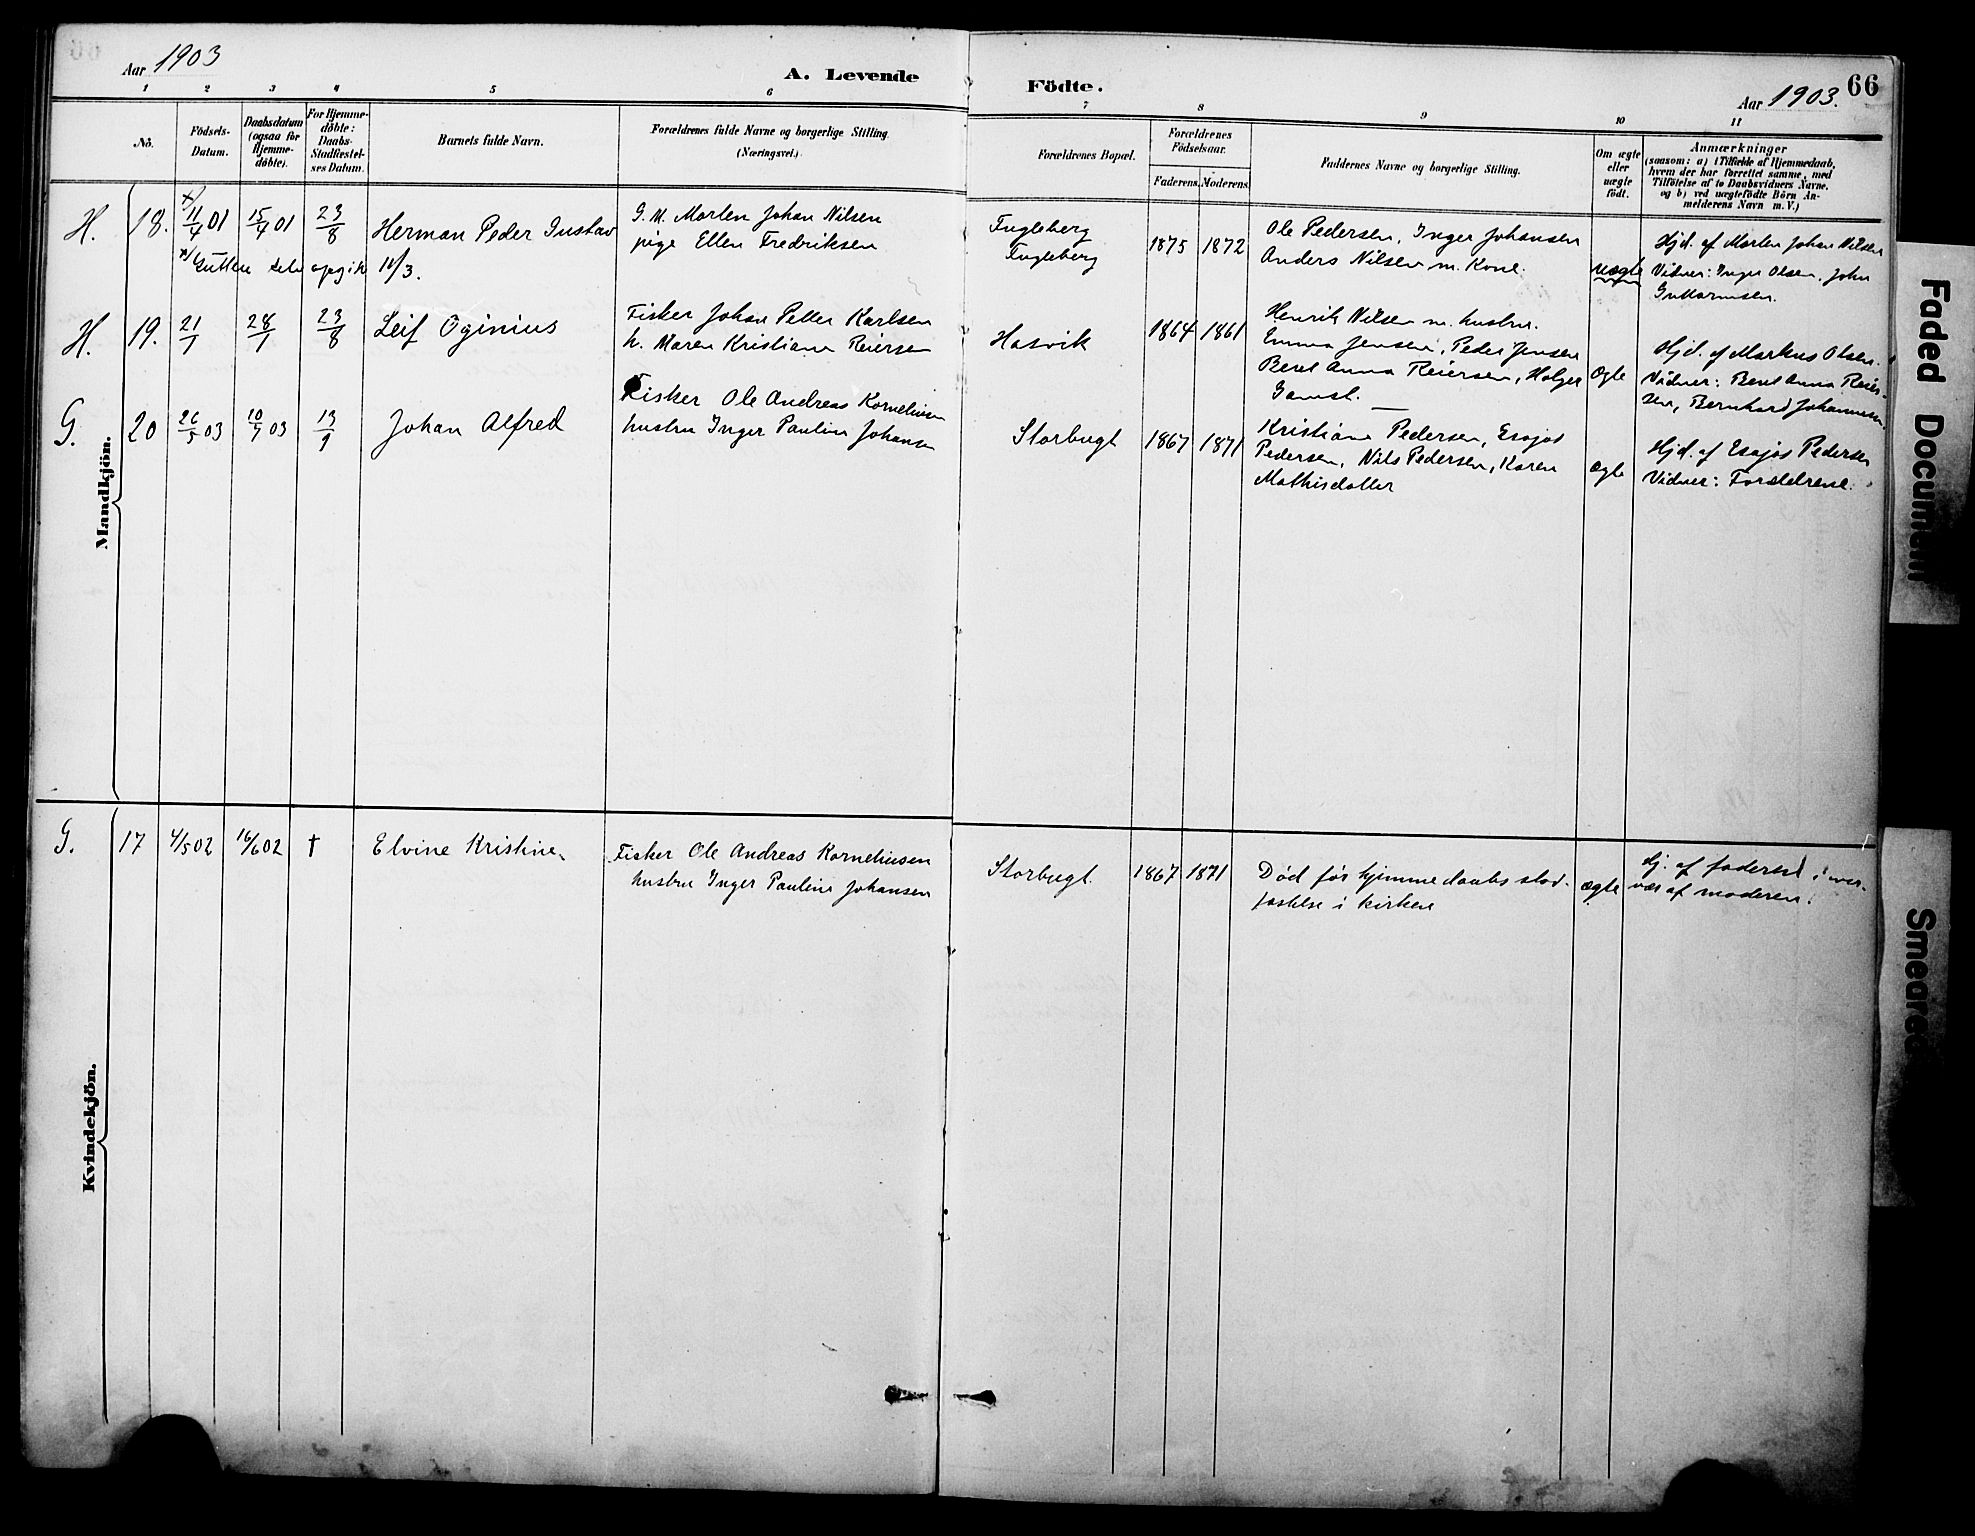 Aar 1903
A. Levende
Födte.
Aar 1903.
66
1 2 3 4 5 6 7 8 9 10 11
No.
Födsels-
Datum.
Daabsdatum
(ogsaa for
Hjemme-
döbte).
For Hjemme-
döbte:
Daabs-
Stadfæstel-
ses Datum.
Barnets fulde Navn.
Forældrenes fulde Navne og borgerlige Stilling.
(Næringsvei.)
Forældrenes Bopæl.
Forældrenes
Födselsaar.
Faderens.
Moderens.
Faddernes Navne og borgerlige Stilling.
Om ægte
eller
uægte
født.
Anmærkninger
(saasom: a) i Tilfælde af Hjemmedaab,
hvem der har forrettet samme, med
Tilföielse af to Daabsvidners Navne.
og b) ved uægtefödte Börn An-
melderens Navn m. V.)
Mandkjön.
H. 18. x) 11/4 01 15/4 01 23/8 Herman Peder Gustav
x) Gutten selv opgik 10/3.
G. M. Morten Johan Nilsen
pige Ellen Fredriksen
Fugleberg
Fugleberg
1875 1872
Ole Pedersen, Inger Johansen
Anders Nilsen m. Kone.
uægte
Hjd. af Morten Johan Nilsen
Vidner: Inger Olsen, John
Guttormsen.
H. 19. 21/1 28/1 23/8 Leif Oginius
Fisker Johan Petter Karlsen
h. Maren Kristiane Reiersen
Hasvik
1864 1861
Henrik Nilsen m. hustru.
Emma Jensen, Peder Jensen
Beret Anna Reiersen, Holger
Gamst.
ægte
Hjd. af Markus Olsen.
Vidner: Beret Anna Reier-
sen, Bernhard Johannesen
G. 20 26/5 03 10/7 03 13/9 Johan Alfred
Fisker Ole Andreas Korneliusen
hustru Inger Pauline Johansen
Storbugt
1867 1871
Kristiane Pedersen, Esajas
Pedersen, Nils Pedersen, Karen
Mathisdatter
ægte
Hjd. af Esajas Pedersen
Vidner: Forældrene.
Kvindekjön.
G. 17 4/5 02 16/6 02 † Elvine Kristine
Fisker Ole Andreas Korneliusen
hustru Inger Pauline Johansen
Storbugt.
1867 1871
Død før hjemmedaabs stad-
fæstelse i kirken
ægte
Hj. af faderen i over-
vær af moderen.
Faded Document
Smeared